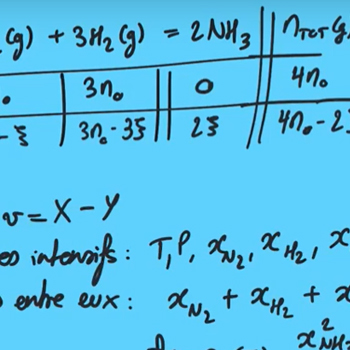 (g) + 3H₂(g) = 2NH₃ n_TOT g
3n₀ 0 4n₀
-ξ 3n₀-3ξ 2ξ 4n₀-2
v = X - Y
intensifs : T, P, x_N₂, x_H₂, x
entre eux : x_N₂ + x_H₂ + x
x²_NH